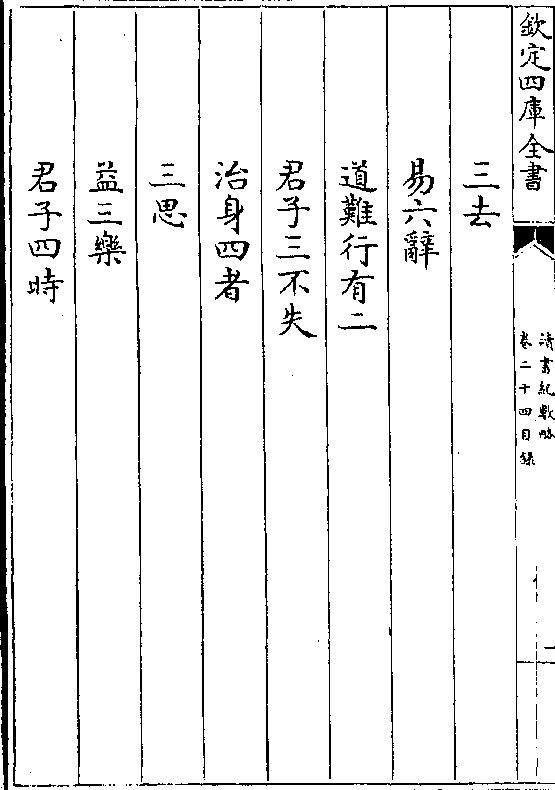 欽定四庫全書
讀書紀數略
卷二十四目錄
三去
易六辭
道難行有二
君子三不失
治身四者
三思
益三樂
君子四時